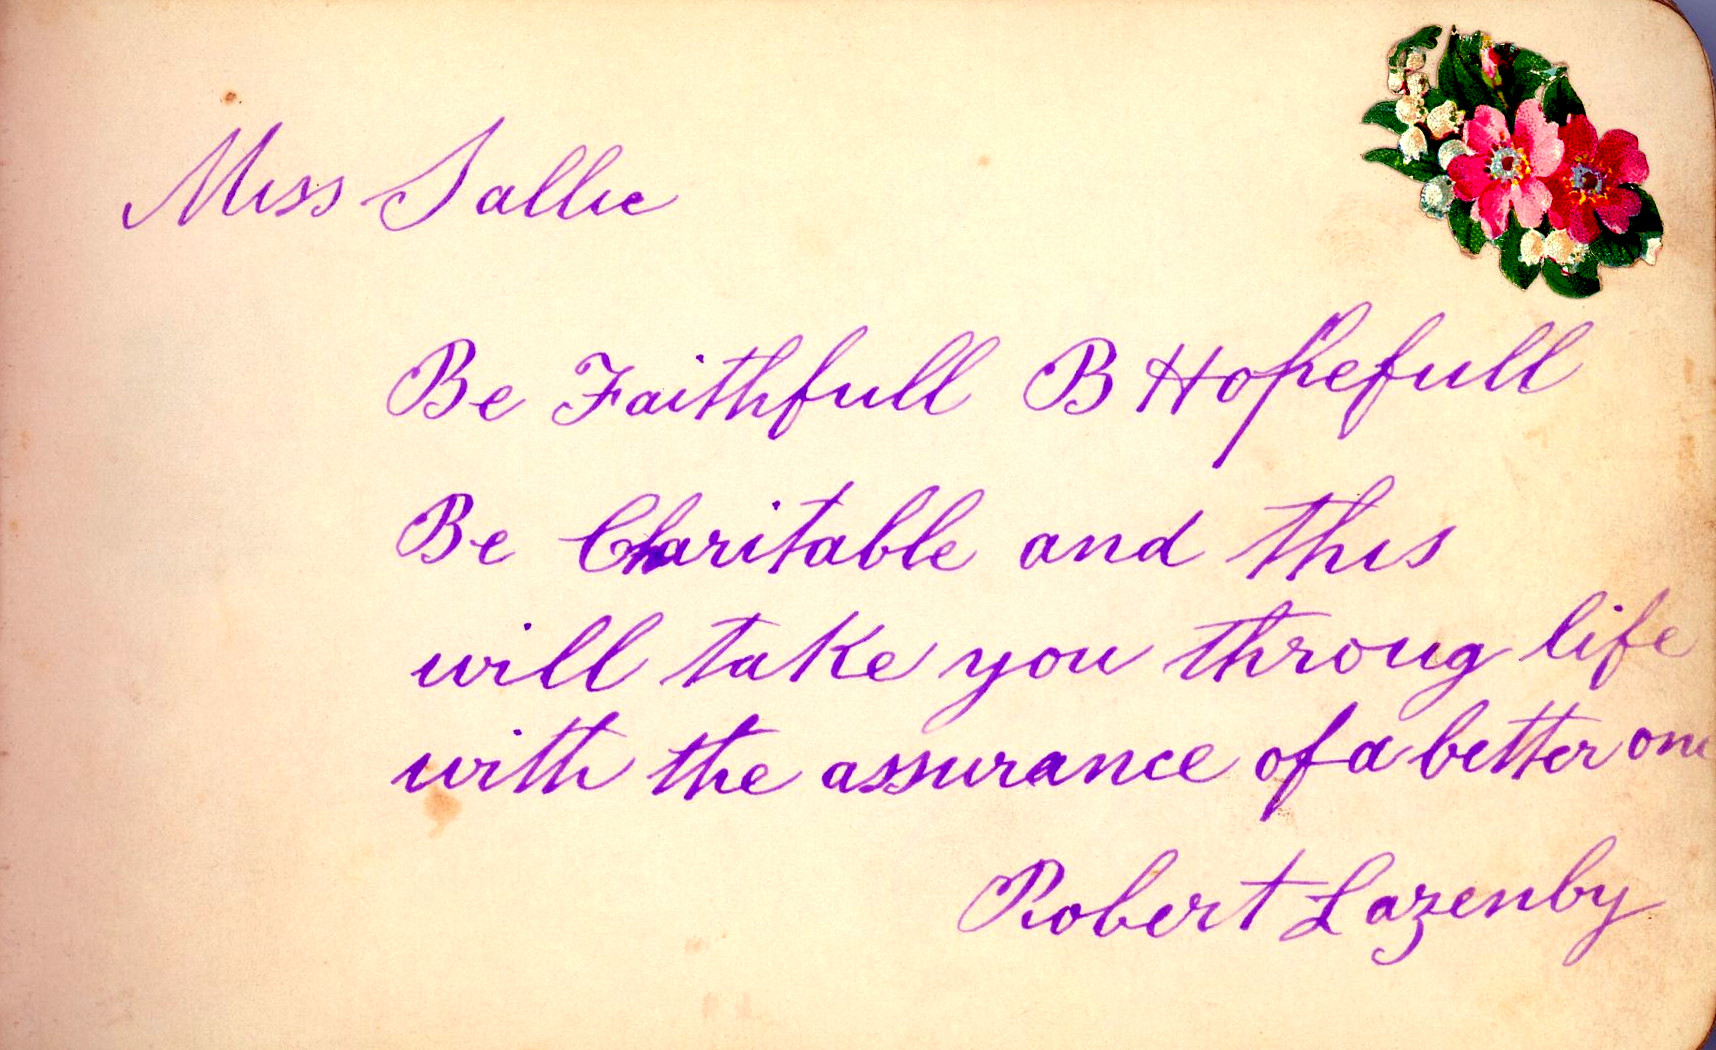 Miss Sallie
Be Faithfull B Hopefull
Be Charitable and this
will take you throug life
with the assurance of a better one
Robert Lazenby